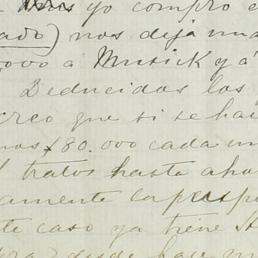 yo compro e
ado) nos deja una
000 á Musick y á
Deducidos los
creo que si se hac
nos $80.000 cada un
l tratos hasta aho
amente la persp
te caso ya tiene
desde hace